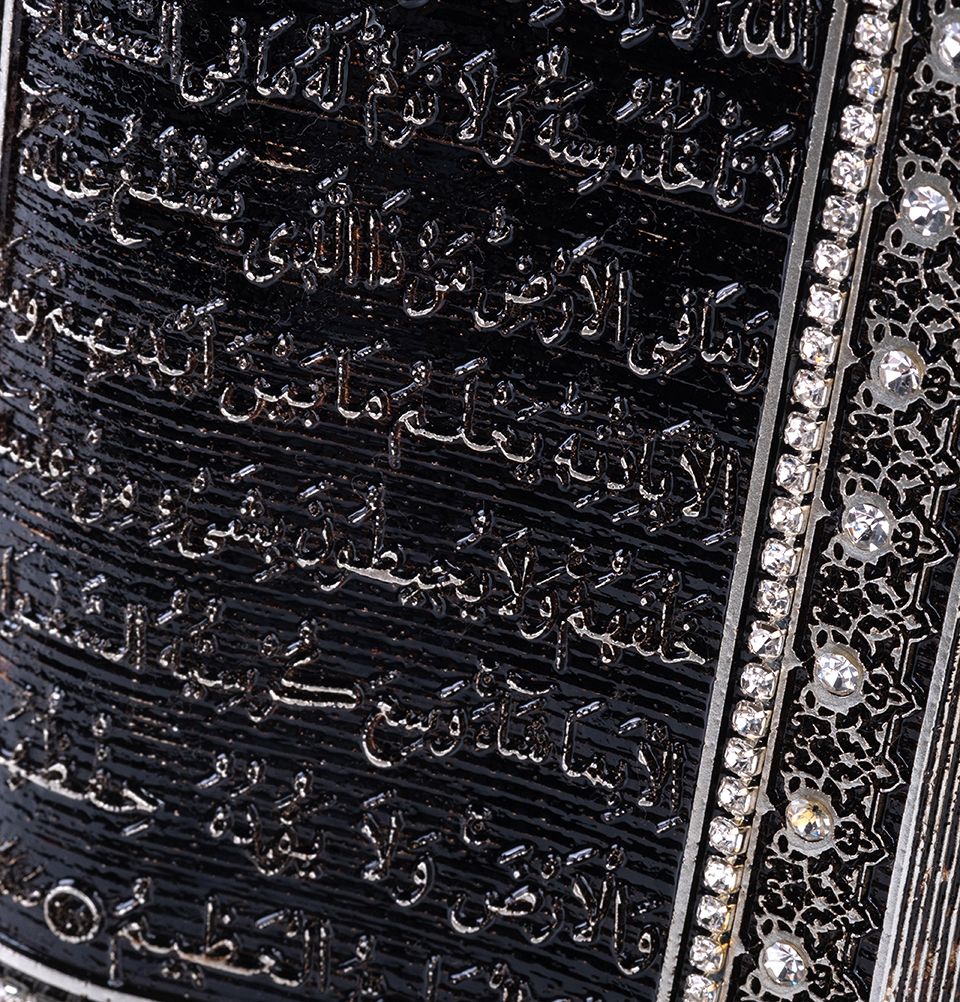 الله لا
لَا تَأْخُذُهُ سِنَةٌ وَلَا نَوْمٌ لَهُ مَا فِي السَّمٰوَاتِ
وَمَا فِي الْاَرْضِ مَنْ ذَا الَّذِي يَشْفَعُ عِنْدَهُ
اِلَّا بِاِذْنِهِ يَعْلَمُ مَا بَيْنَ اَيْدِيهِمْ وَمَا
خَلْفَهُمْ وَلَا يُحِيطُونَ بِشَيْءٍ مِنْ عِلْمِهِ
اِلَّا بِمَا شَاءَ وَسِعَ كُرْسِيُّهُ السَّمٰوَاتِ
وَالْاَرْضَ وَلَا يَؤُدُهُ حِفْظُهُمَا
الْعَظِيمُ